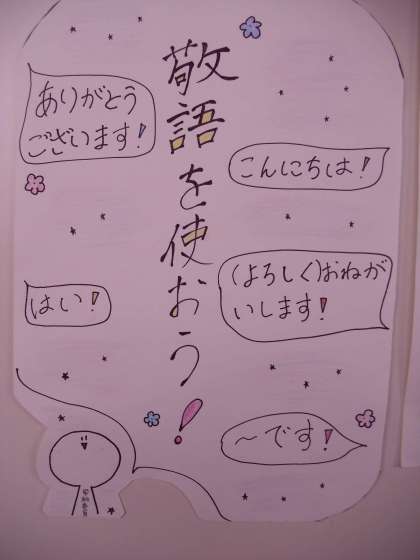 敬語を使おう！
ありがとう
ございます！
こんにちは！
はい！
(よろしく)おねが
いします！
～です！